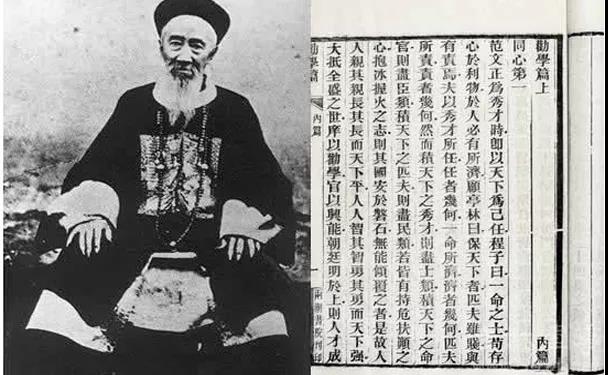 勸學篇上
同心第一
范文正爲秀才時卽以天下爲己任程子曰一命之士苟存
心於利物於人必有所濟顧亭林曰保天下者匹夫雖賤與
有責焉夫以秀才所任任者幾何一命所濟濟者幾何匹夫
所責責者幾何然而積天下之秀才則盡士類積天下之命
官則盡臣類積天下之匹夫則盡民類若皆有持危扶顚之
心抱冰握火之志則其國安於磐石無能傾覆之者是故人
人親其親長其長而天下平人人智其智勇其勇而天下强
大抵全盛之世庠以勸學官以興能朝廷明於上則人才成
内篇
勸學篇
内篇
一
兩湖書院刊印